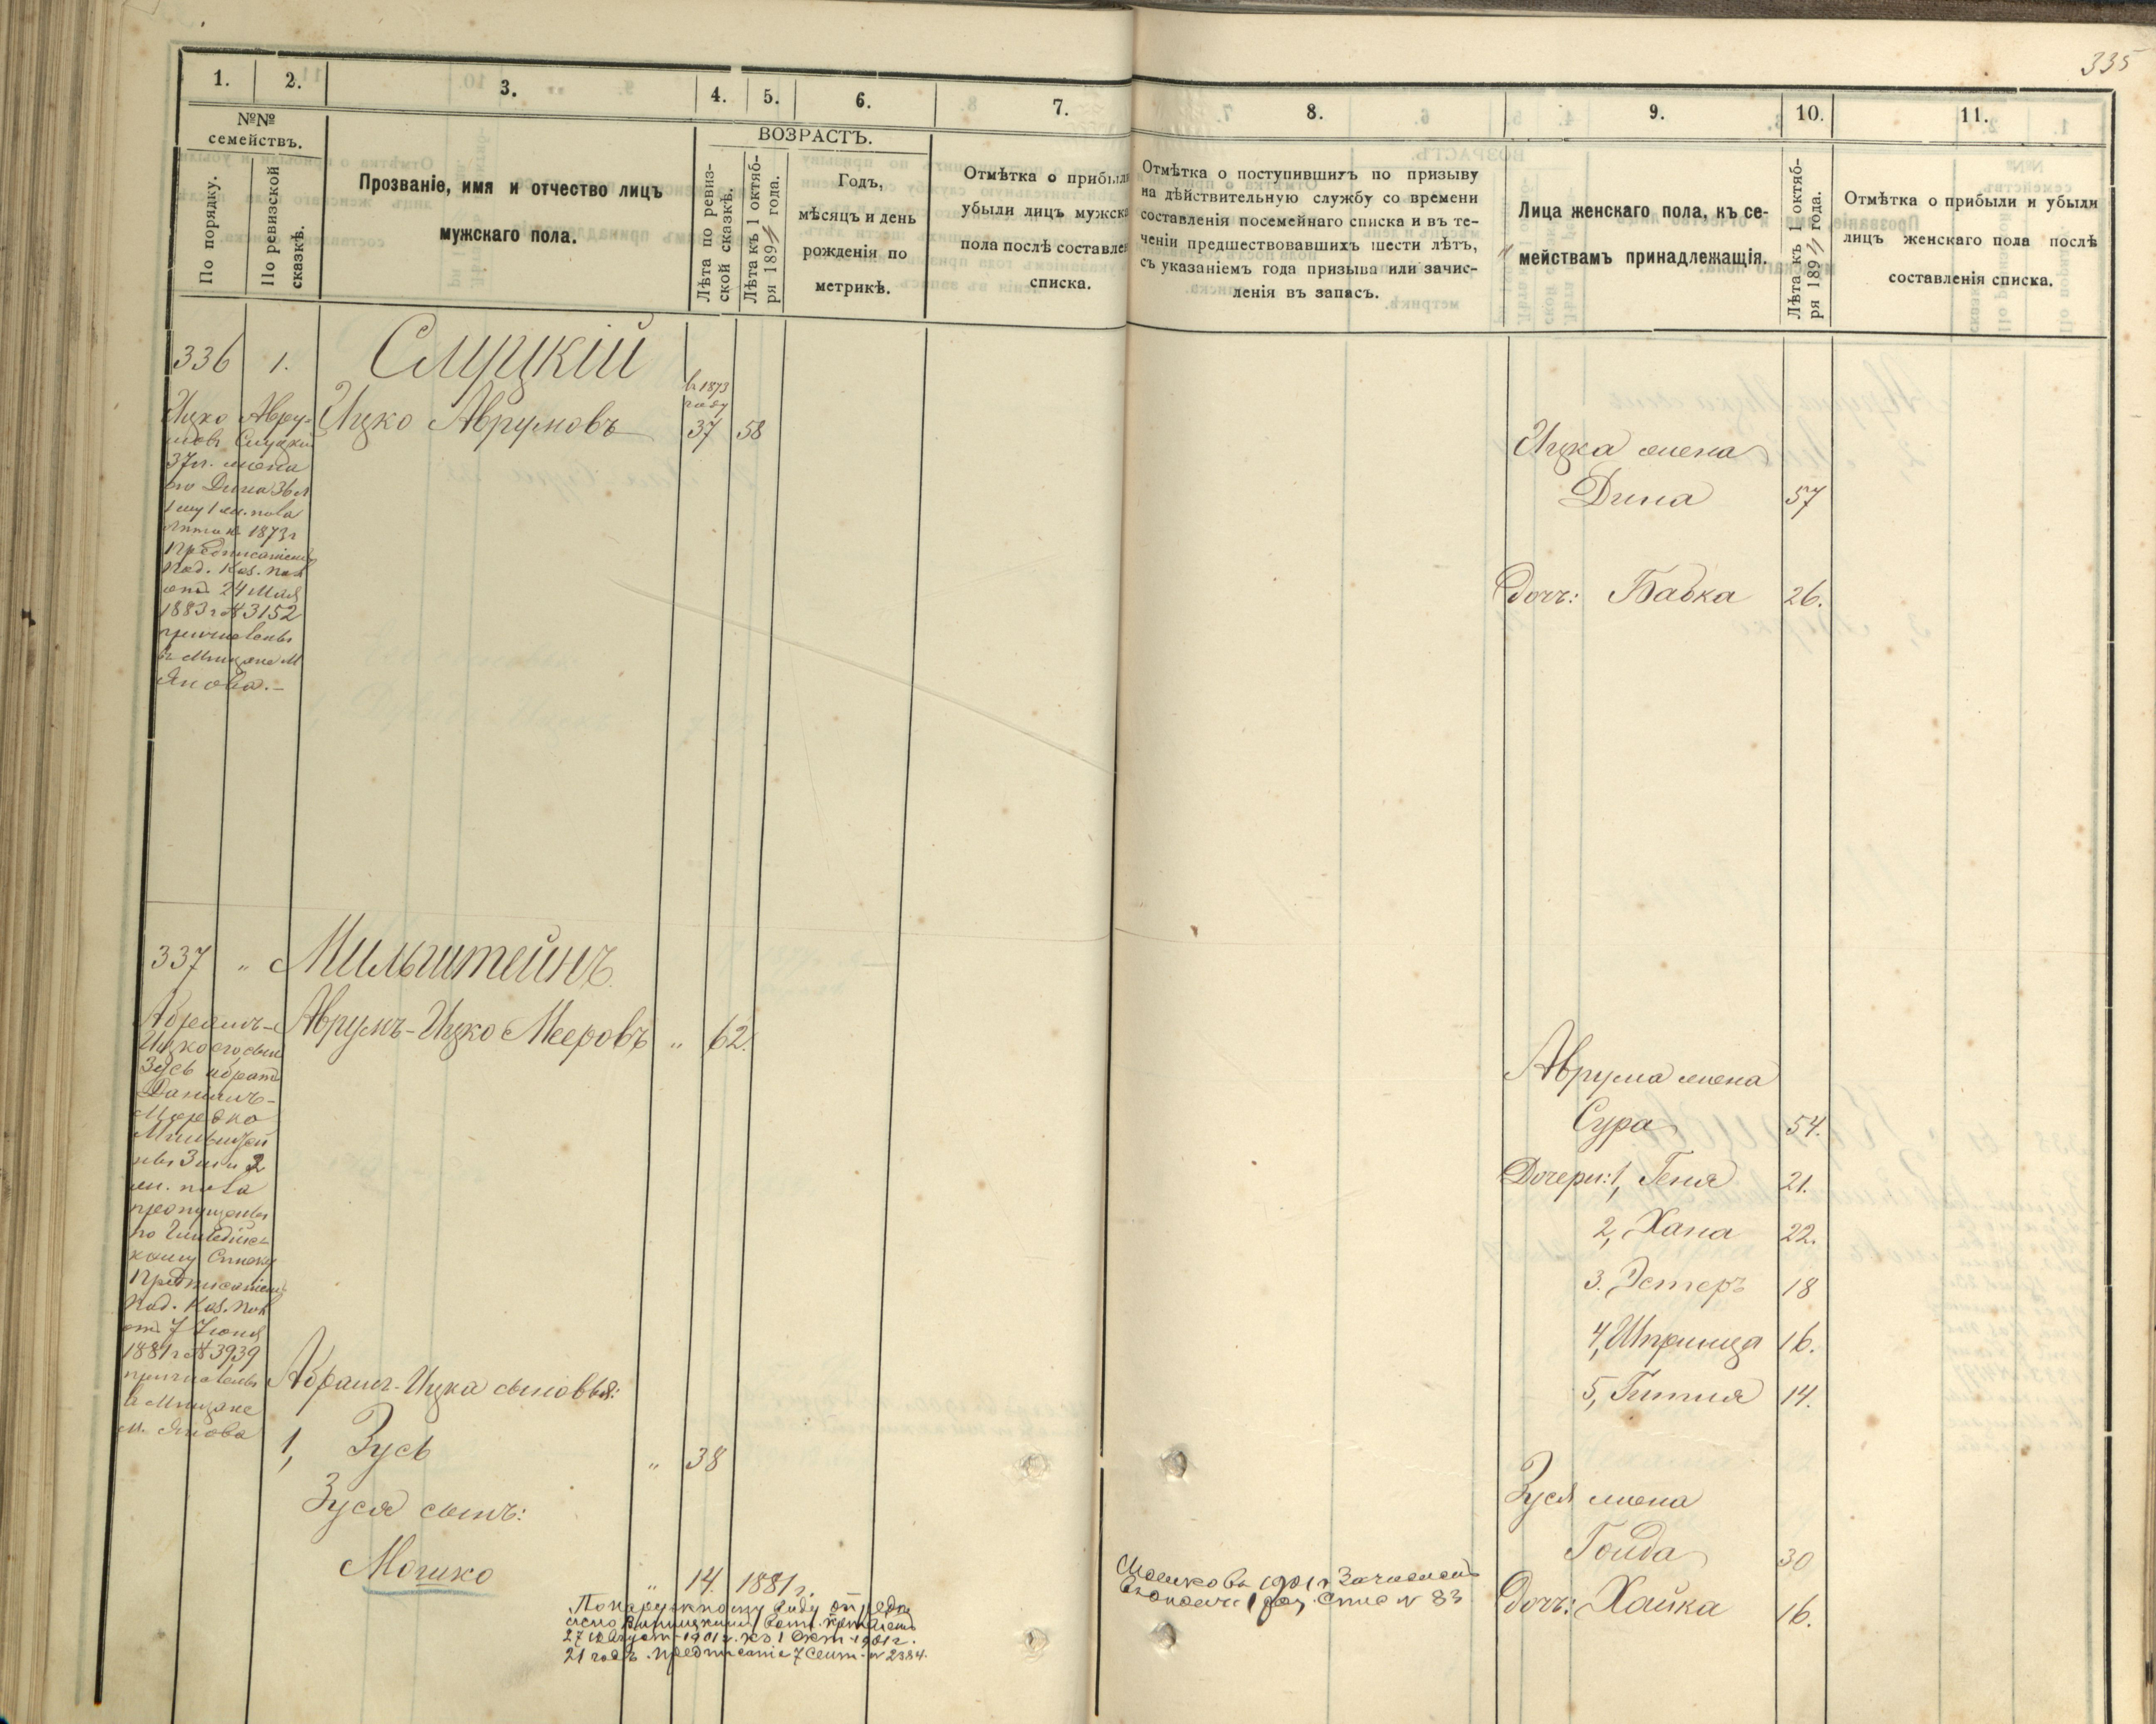 335
1. 2. 3. 4. 5. 6. 7. 8. 9. 10. 11.
№№ семействъ.
По порядку.
По ревизской сказкѣ.
Прозваніе, имя и отчество лицъ
мужскаго пола.
ВОЗРАСТЪ.
Лѣта по ревиз-
ской сказкѣ.
Лѣта къ 1 октяб-
ря 189 года.
Годъ,
мѣсяцъ и день
рожденія по
метрикѣ.
Отмѣтка о прибыли
убыли лицъ мужска
пола послѣ составле
списка.
Отмѣтка о поступившихъ по призыву
на дѣйствительную службу со времени
составленія посемейнаго списка и въ те-
ченіи предшествовавшихъ шести лѣтъ,
съ указаніемъ года призыва или зачис-
ленія въ запасъ.
Лица женскаго пола, къ се-
мействамъ принадлежащія.
Лѣта къ 1 октяб-
ря 189 года.
Отмѣтка о прибыли и убыли
лицъ женскаго пола послѣ
составленія списка.
336 1. Слуцкій
в 1873
году
Ицко Аврумовъ 37 58
Ицко Авру-
мовъ Слуцкій
37 л. жена
его Дина 36 л
1 му 1 жен. пола
1873 г
Предписаніемъ
Под. Каз. Пал
отъ 24 Мая
1883 г № 3152
причислены
в Мищане М
Янова.-
Ицка жена
Дина 57
Дочь: Бабка 26.
337 „ Мильштейнъ
Аврумъ-Ицко Мееровъ „ 62.
Абрамъ-
Ицко его сын
Зусь и братъ
Данилъ-
Мордко
Мильштей
ны 3 м и 2
жен. пола
пропущены
по
кому Списку
Предписаніемъ
Под. Каз. Пал
отъ 7 Июня
1881 г № 3939
причислены
в Мищане
м. Янова
Аврума жена
Сура 54.
Дочери: 1, Геня 21.
2, Хана 22.
3. Эстеръ 18
4, Шпринца 16.
5, Гитля 14.
Абрамъ-Ицка сыновья:
1, Зусь „ 38
Зуся сынъ:
Мошко „ 14. 1881 г.
По наружному виду опредѣ
лено Винницкимъ
27 Август 1901 г. къ 1 Окт 1901 г.
21 годъ. Предписаніе 7 Сент. № 2384.
Мошко въ 1901 г Зачислен
в ополч 1 раз. Спис № 83
Зуся жена
Гольда 30
Дочь: Хайка 16.